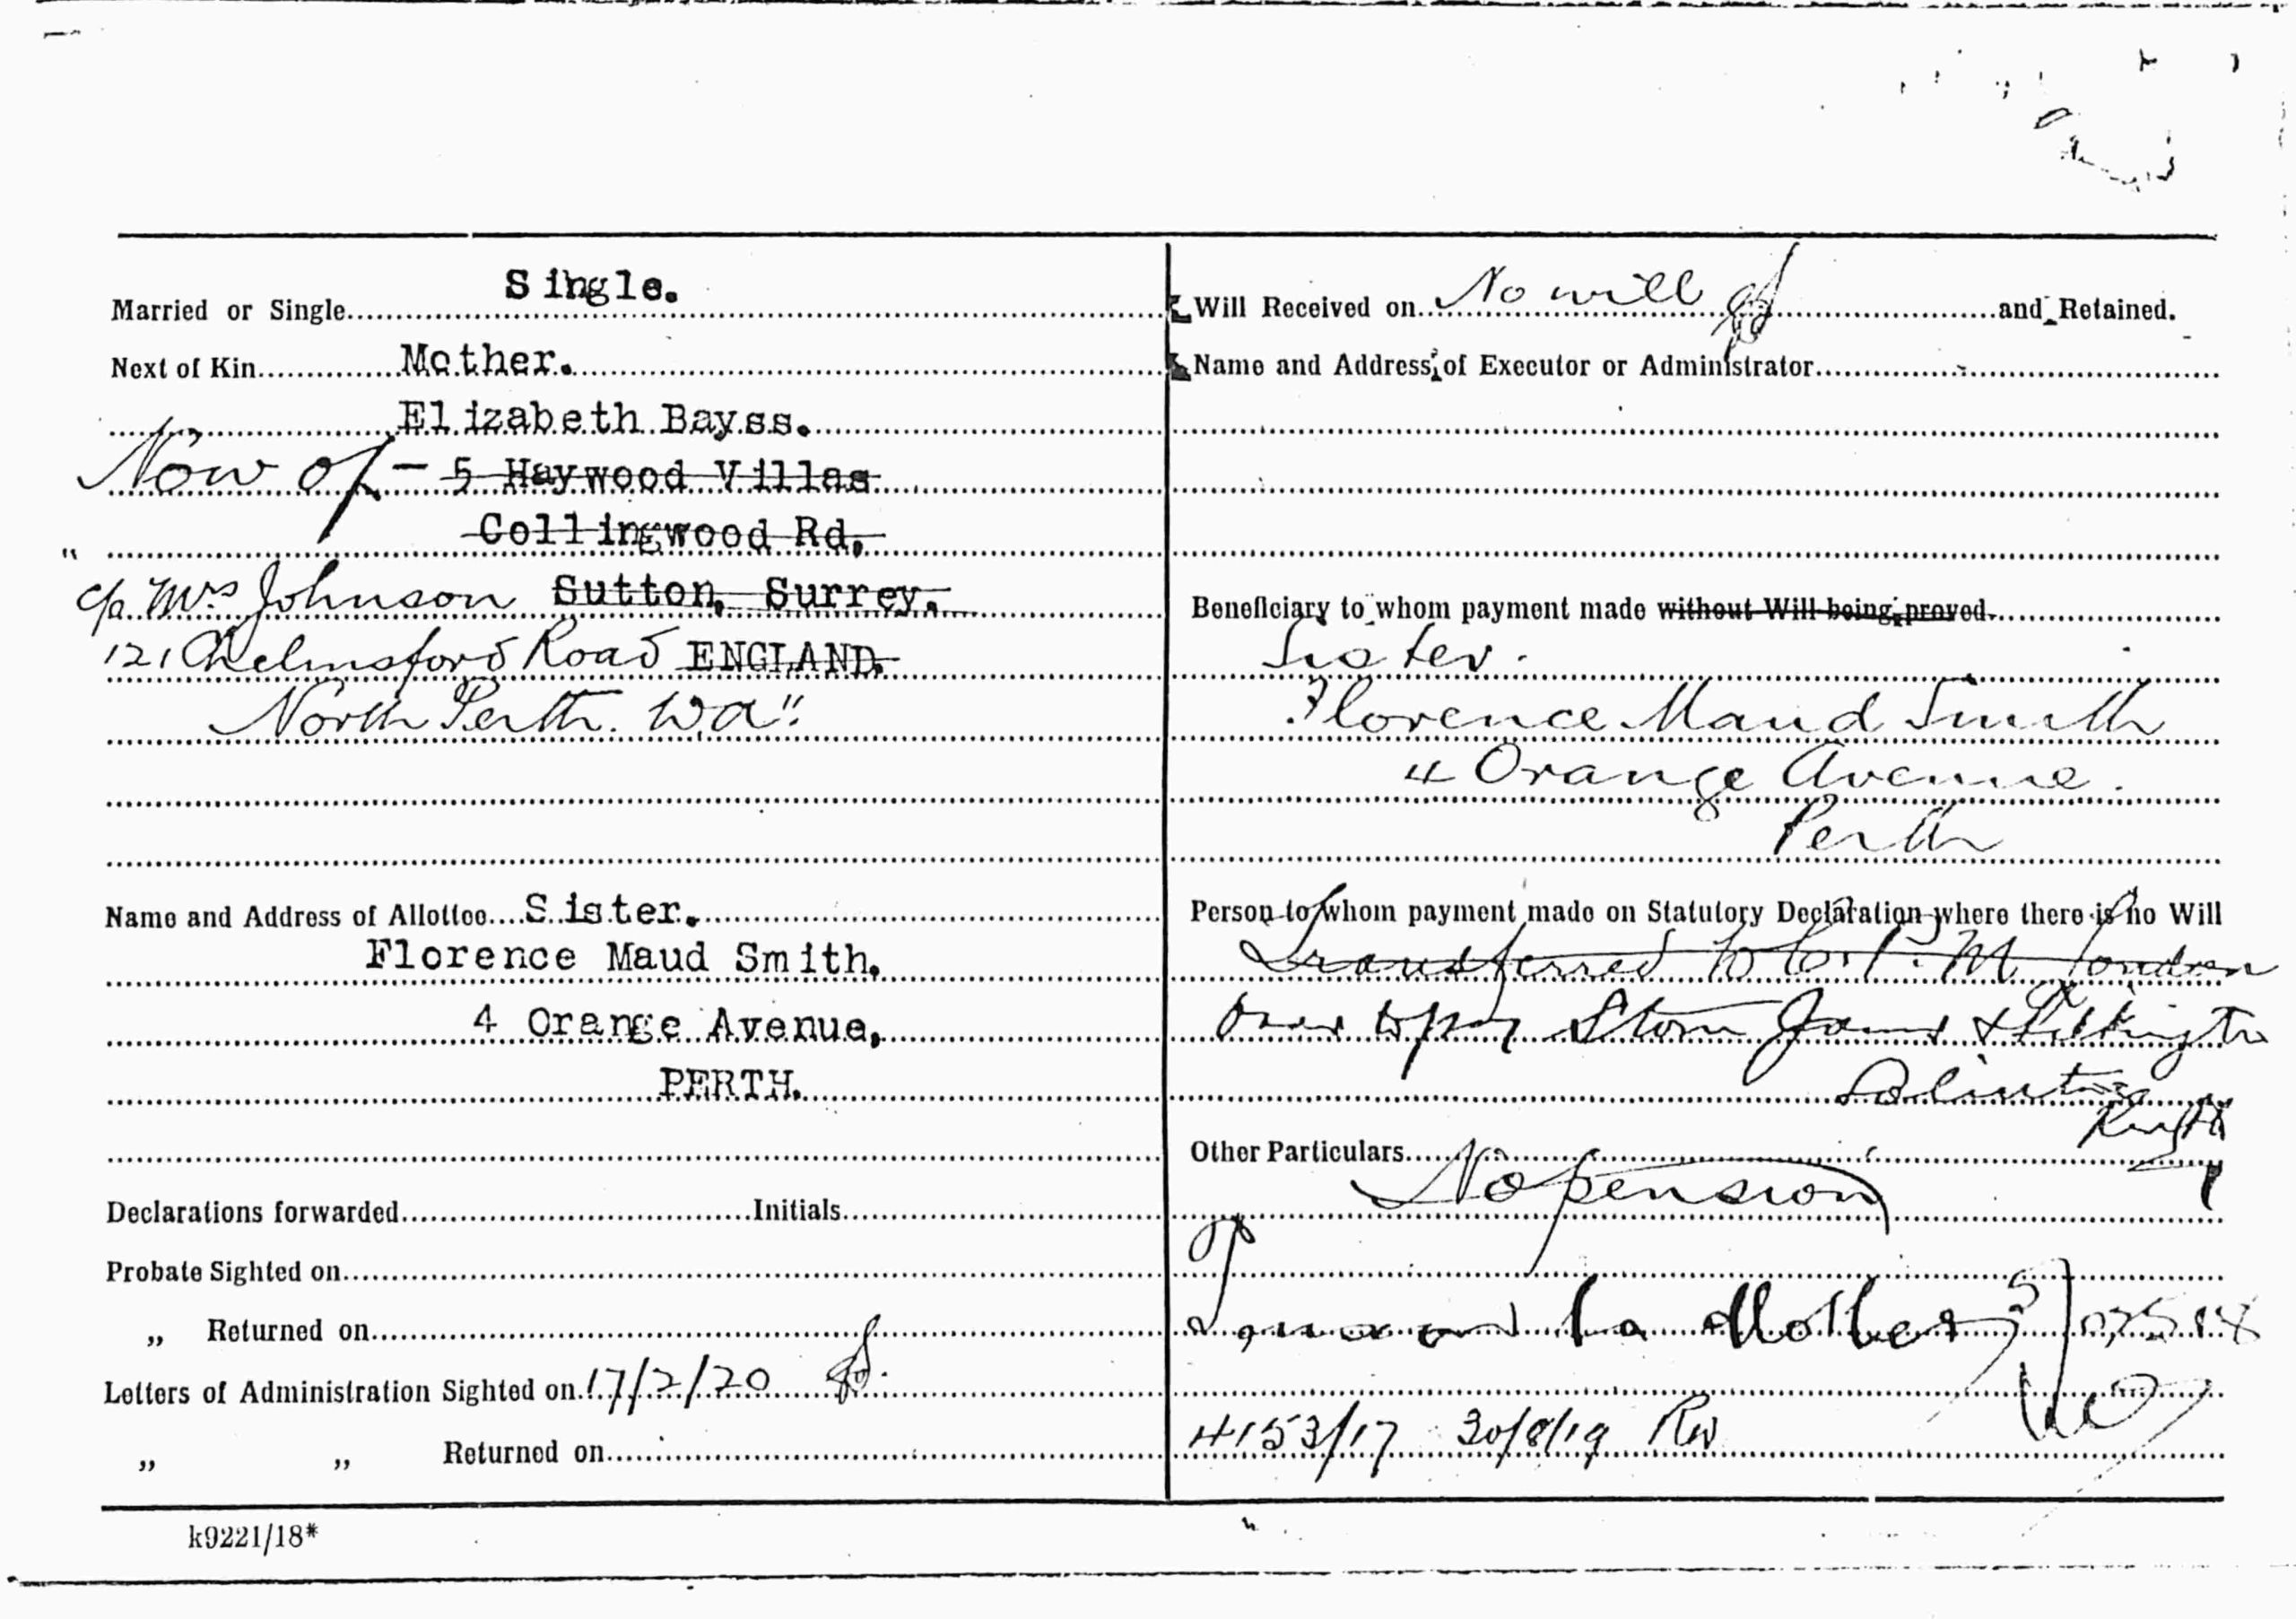 Married or Single Single.
Next of Kin Mother.
Elizabeth Bayss.
Now of - 5 Haywood Villas
Collingwood Rd,
" c/o Mrs Johnson Sutton, Surrey.
121 Chelmsford Road ENGLAND.
North Perth. W.A".
Name and Address of Allottee Sister.
Florence Maud Smith.
4 Orange Avenue,
PERTH.
Declarations forwarded Initials
Probate Sighted on
„ Returned on
Letters of Administration Sighted on 17/2/20
„ „ Returned on
k9221/18*
Will Received on No will and Retained.
Name and Address of Executor or Administrator
Beneficiary to whom payment made without Will being proved.
Sister.
Florence Maud Smith
4 Orange Avenue.
Perth
Person to whom payment made on Statutory Declaration where there is no Will
Transferred to London
Stone James &
Perth
Other Particulars
No pension
to Mother
4153/17 30/8/19 RW